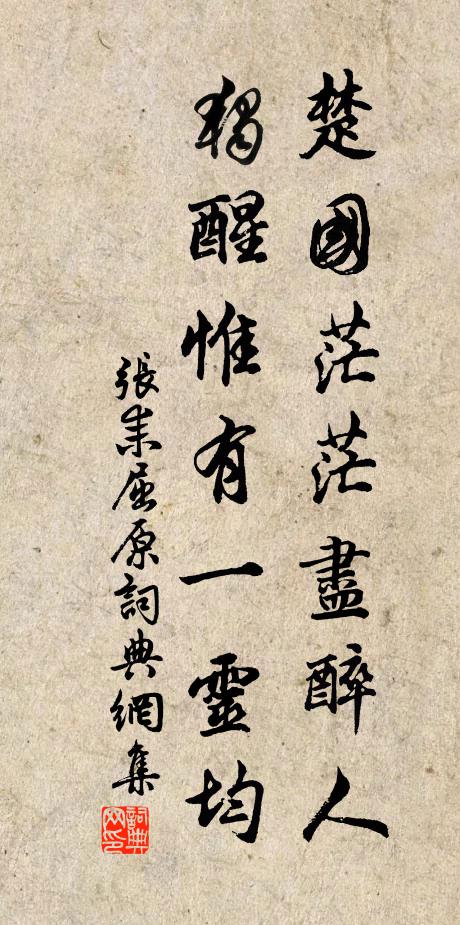 楚國茫茫盡醉人
獨醒惟有一靈均
張耒屈原詞典網集
詞典网印